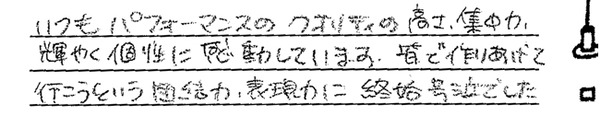 いつもパフォーマンスのクオリティの高さ、集中力、
輝やく個性に感動しています。皆で作りあげて
行こうという団結力、表現力に終始号泣でした